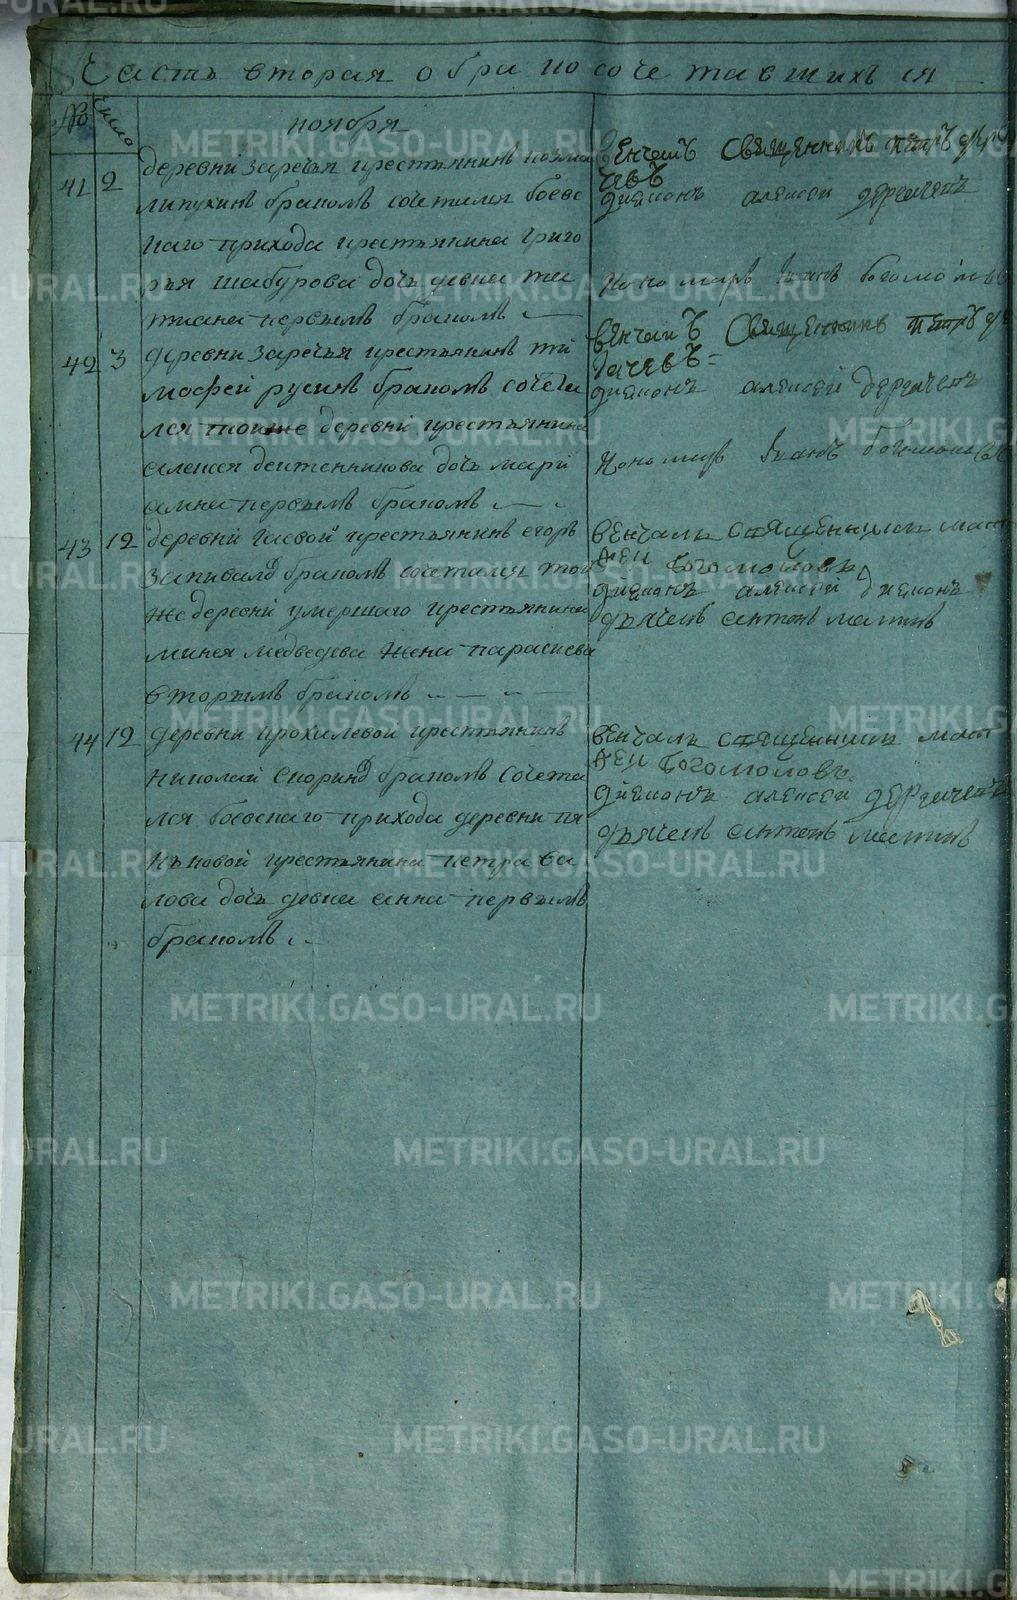 Часть вторая о бракосочетавшихся
№ Число
ноября
41 2 деревни заречья крестьянинъ козма
липухинъ бракомъ сочетался боевс
каго прихода крестьянина григо
рья шабурова дочь девка та
тиана первымъ бракомъ
венчалъ Священникъ петръ
чевъ
диаконъ алексей дергачевъ
пономарь Іоанъ богомоловъ
42 3 деревни заречья крестьянинъ ти
мофей русинъ бракомъ сочета
лся тоиже деревни крестьянина
алексея дочь мари
амна первымъ бракомъ
венчалъ Священникъ петръ де
гачевъ
диаконъ алексей дергачевъ
пономарь Іоанъ
43 12 деревни гаевой крестьянинъ егоръ
запивалъ бракомъ сочетался той
же деревни умершаго крестьянина
минея медведева жена параскева
вторымъ бракомъ
венчалъ священникъ мат
фей богомоловъ
диаконъ алексей диаконъ
дьячекъ антонъ
44 12 деревни прохилевой крестьянинъ
николай бракомъ сочета
лся боевскаго прихода деревни пя
нковой крестьянина петра ва
лова дочь девка анна первымъ
бракомъ
венчалъ священникъ мат
фей богомоловъ
диаконъ алексей дергачевъ
дьячекъ антонъ
METRIKI.GASO-URAL.RU